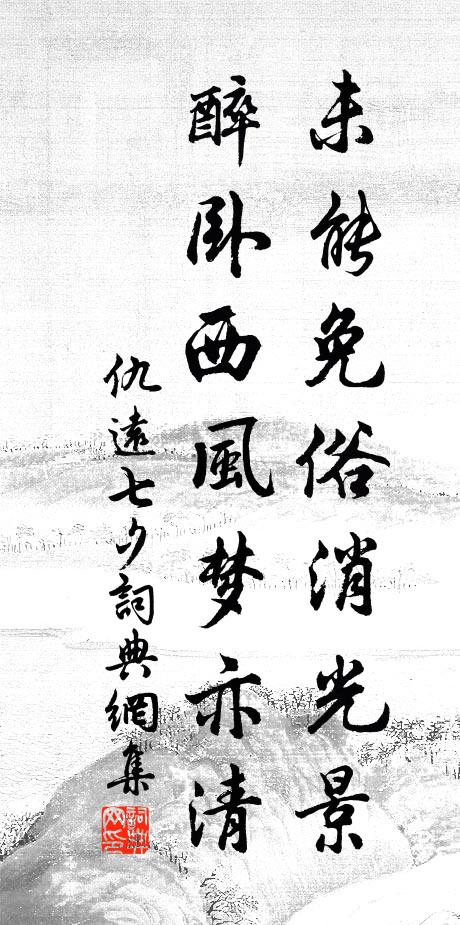 未能免俗消光景
醉卧西風梦亦清
仇遠七夕詞典網集